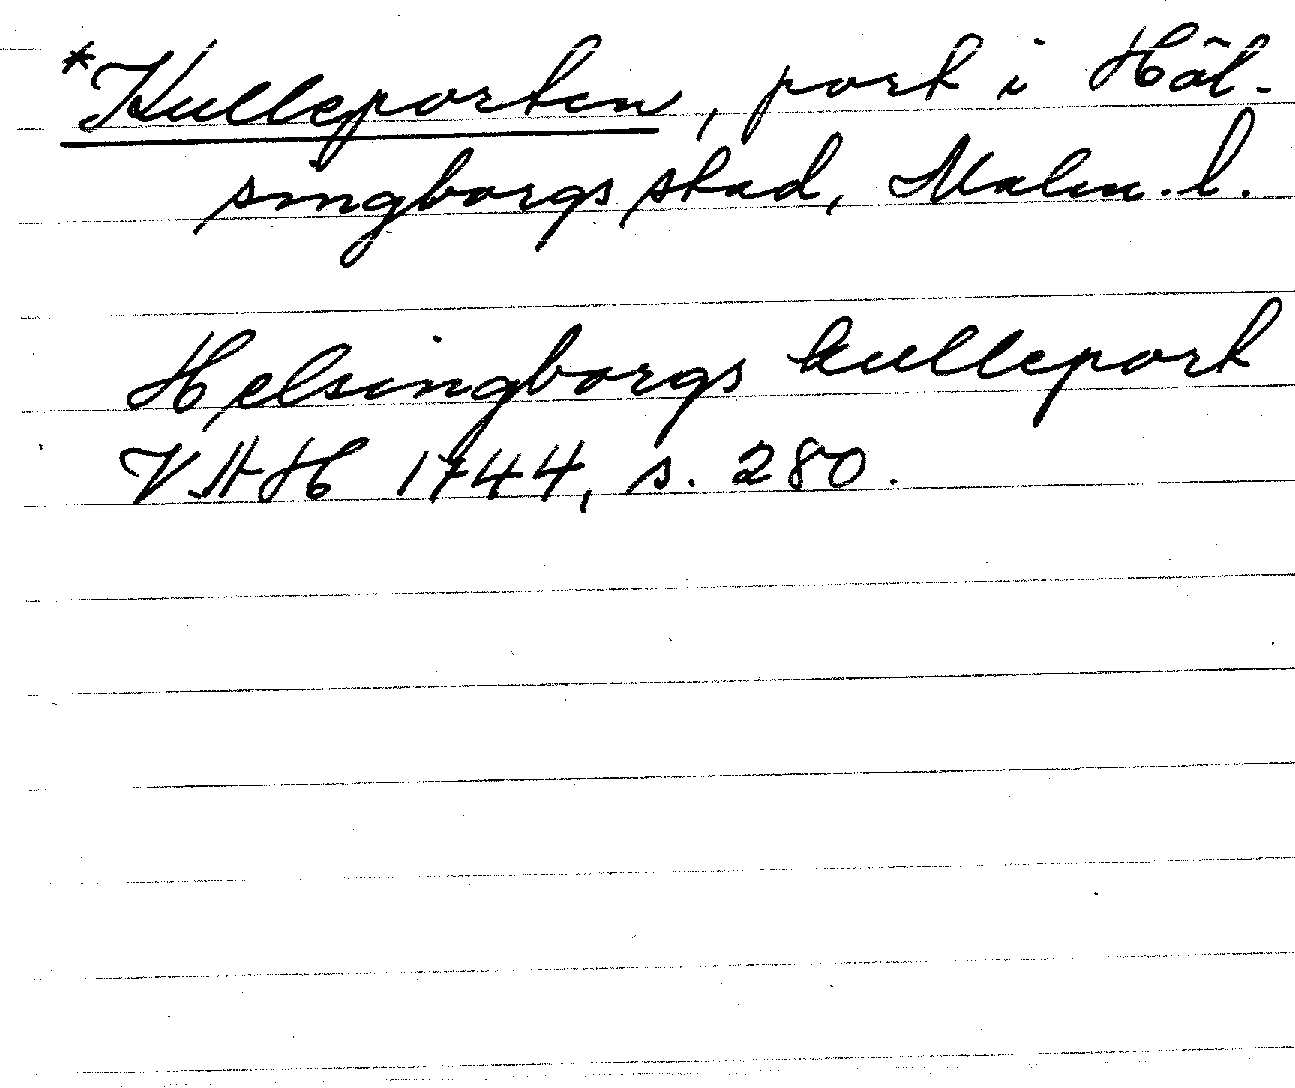 *Kulleporten, port i Häl-
singborgs stad, Malm. l.
Helsingborgs kulleport
VAH 1744, s. 280.